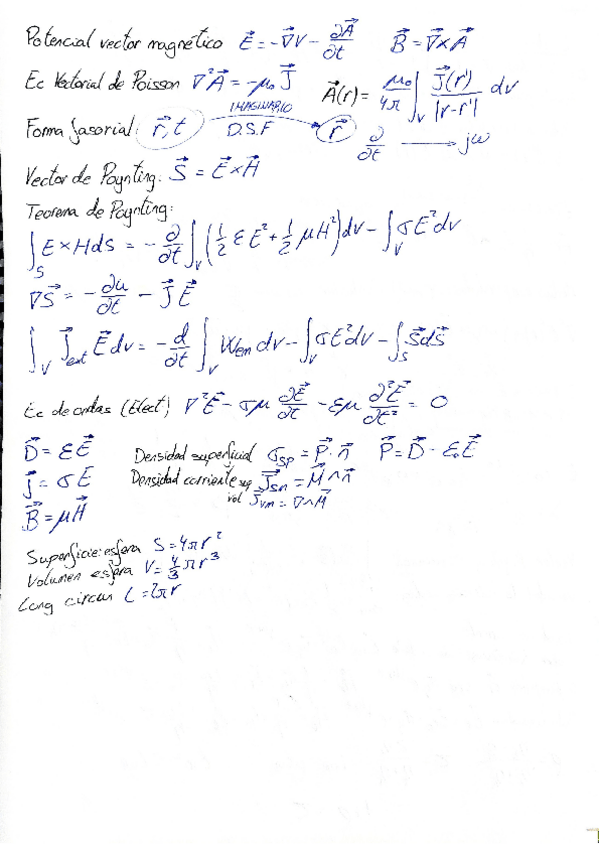 Potencial vector magnético $\vec{E} = -\vec{\nabla}V - \frac{\partial \vec{A}}{\partial t}$ $\vec{B} = \vec{\nabla} \times \vec{A}$
Ec Vectorial de Poisson $\nabla^2 \vec{A} = -\mu_0 \vec{J}$ $\vec{A}(r) = \frac{\mu_0}{4\pi} \int_V \frac{\vec{J}(r')}{|r-r'|} dv$
Forma fasorial: $\vec{r}, t$ IMAGINARIO D.S.F $\vec{r}$ $\frac{\partial}{\partial t} \longrightarrow j\omega$
Vector de Poynting: $\vec{S} = \vec{E} \times \vec{H}$
Teorema de Poynting:
$\int_S E \times H dS = -\frac{\partial}{\partial t} \int_V \left(\frac{1}{2} \varepsilon E^2 + \frac{1}{2} \mu H^2\right) dv - \int_V \sigma E^2 dv$
$\nabla \vec{S} = -\frac{\partial u}{\partial t} - \vec{J} \vec{E}$
$\int_V \vec{J}_{ext} \vec{E} dv = -\frac{d}{dt} \int_V W_{em} dv - \int_V \sigma E^2 dv - \int_S \vec{S} d\vec{s}$
Ec de ondas (Elect) $\nabla^2 \vec{E} - \sigma\mu \frac{\partial \vec{E}}{\partial t} - \varepsilon\mu \frac{\partial^2 \vec{E}}{\partial t^2} = 0$
$\vec{D} = \varepsilon \vec{E}$ Densidad superficial $\sigma_{sp} = \vec{P} \cdot \vec{n}$ $\vec{P} = \vec{D} - \varepsilon_0 \vec{E}$
$\vec{J} = \sigma E$ Densidad corriente sup $\vec{J}_{sm} = \vec{M} \wedge \vec{n}$
vol $\vec{J}_{vm} = \nabla \wedge \vec{M}$
$\vec{B} = \mu \vec{H}$
Superficie esfera $S = 4\pi r^2$
Volumen esfera $V = \frac{4}{3} \pi r^3$
Long circun $L = 2\pi r$